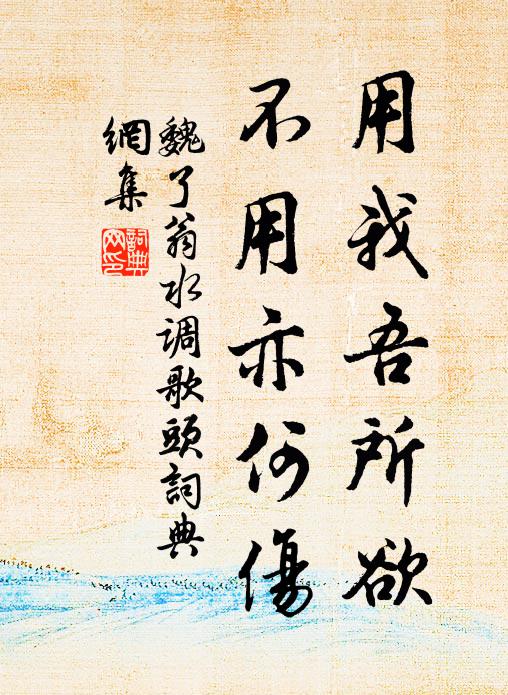 用我吾所欲
不用亦何傷
魏了翁水调歌頭詞典
網集
詞典
网印